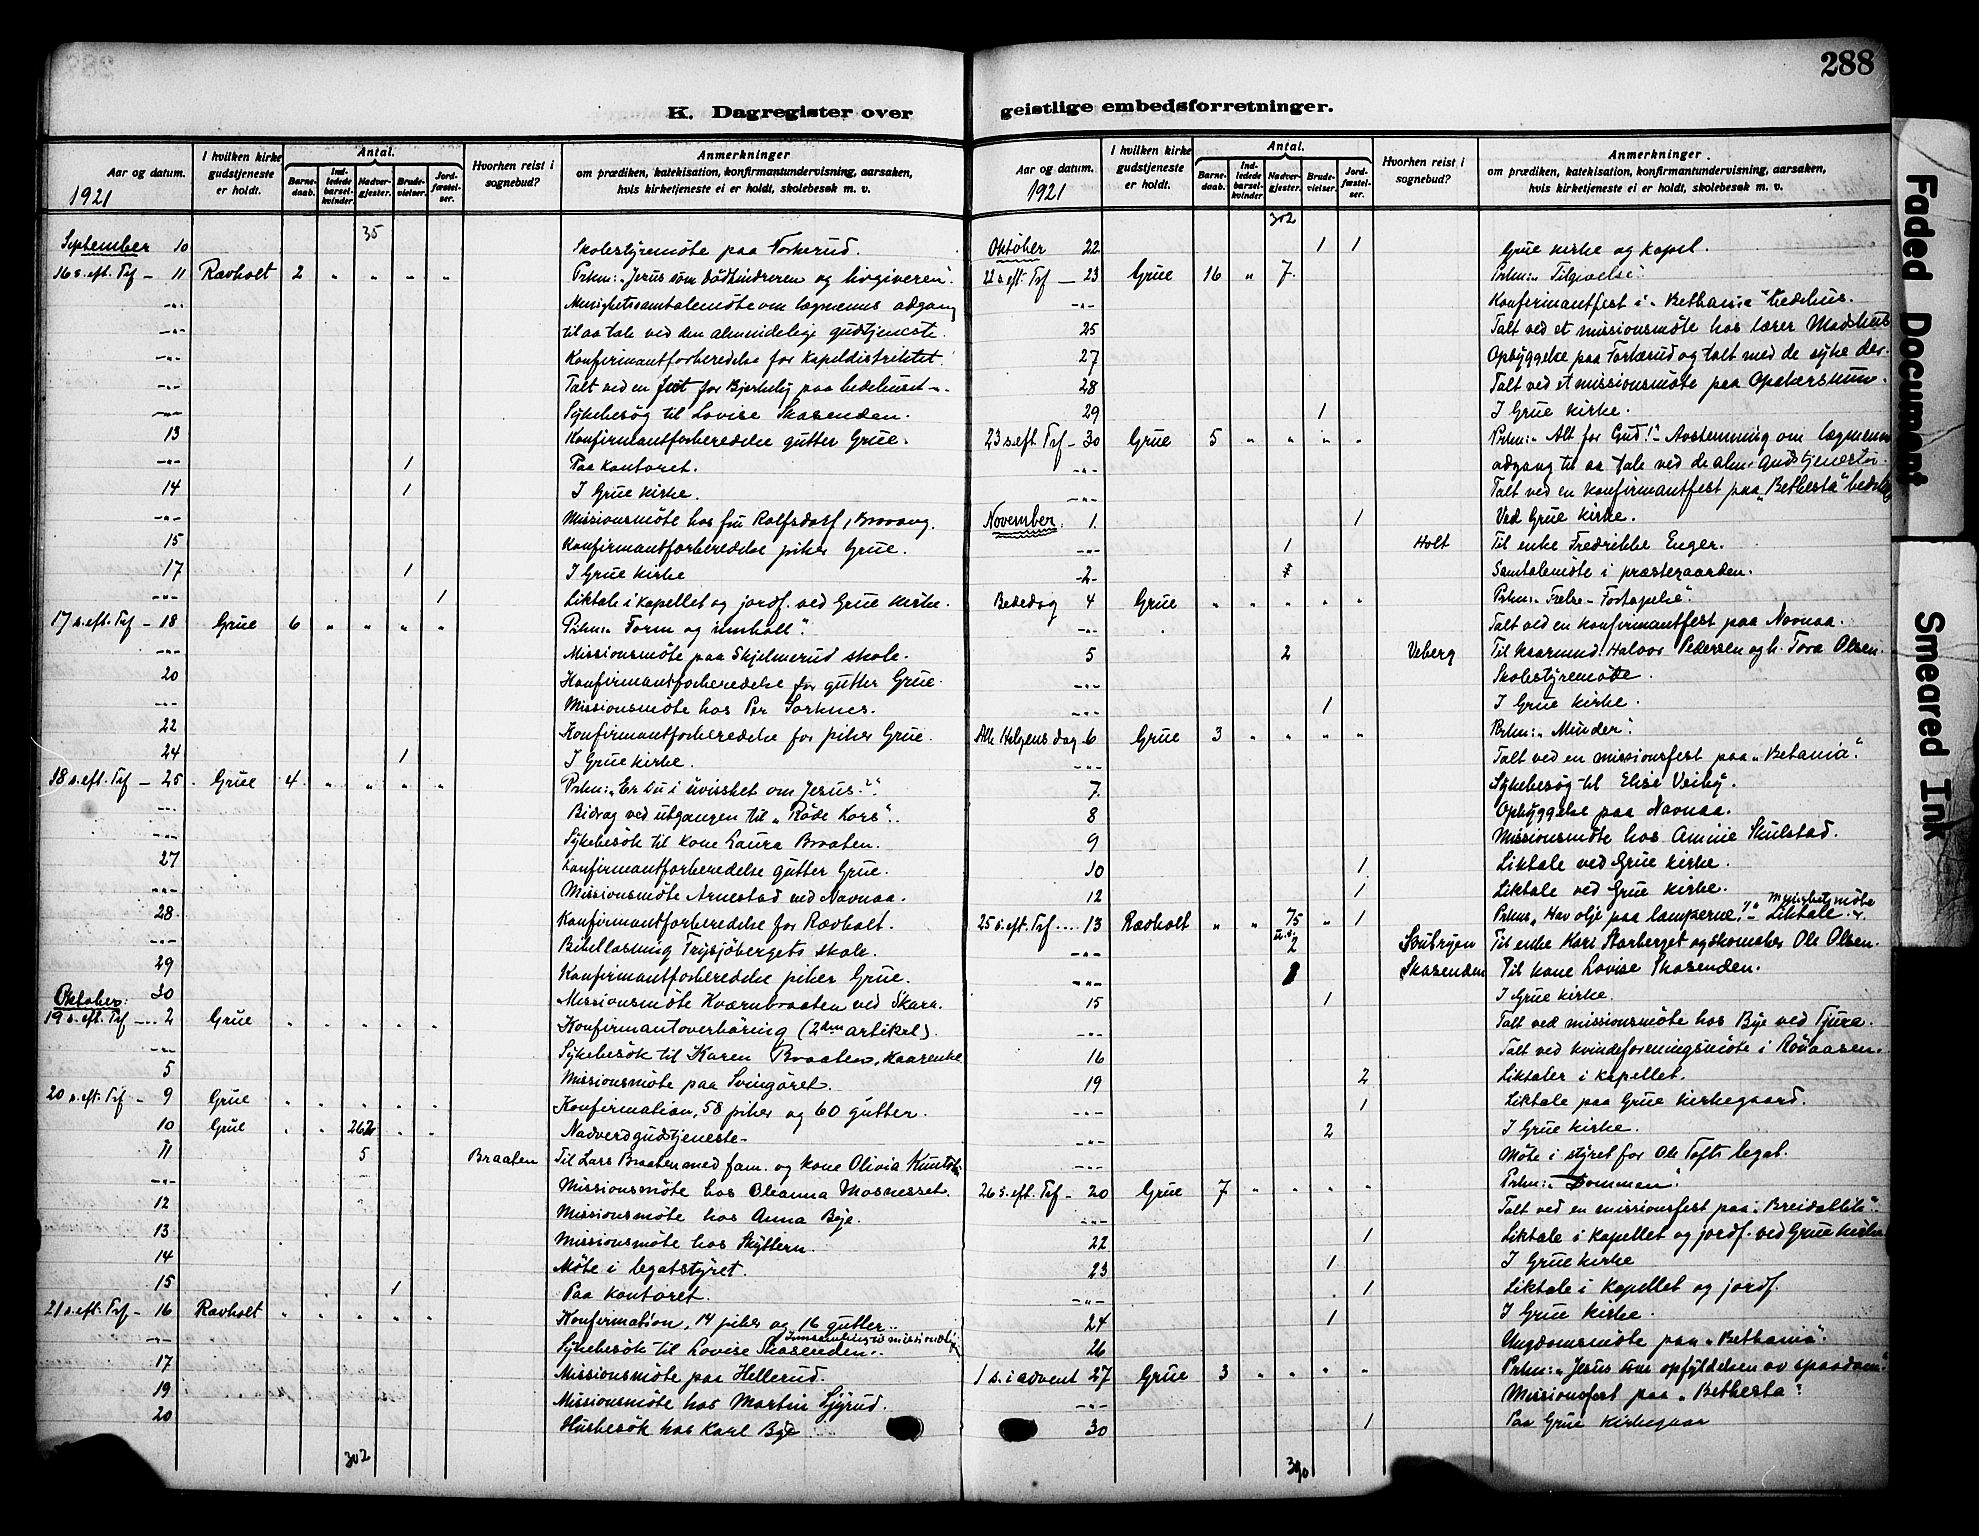 288
K. Dagregister over geistlige embedsforretninger.
Aar og datum. 1921 | I hvilken kirke gudstjeneste er holdt. | Antal. Barnedaab. | Indledede barselkvinder. | Nadvergjester. | Brudevielser. | Jordfæstelser. | Hvorhen reist i sognebud? | Anmerkninger om prædiken, katekisation, konfirmantundervisning, aarsaken, hvis kirketjeneste ei er holdt, skolebesøk m. v.
35
September 10 Skolestyremöte paa Torkerud.
16 s. eft. Trf - 11 Ravholt 2 " " " " Prkn: "Jesus som dödhindreren og livgiveren".
-"- Menighetssamtalemöte om lægmenns adgang
-"- til aa tale ved den almindelige gudstjeneste.
-"- Konfirmantforberedelse for kapeldistriktet.
-"- Talt ved en fest for Bjerkely paa bedehuset -
-"- Sykebesög til Lovise Skasenden.
13 Konfirmantforberedelse gutter Grue.
-"- 1 Paa kontoret.
14 1 I Grue kirke.
-"- Missionsmöte hos fru Rolfsdorf, Bravang.
15 Konfirmantforberedelse piker Grue.
17 1 I Grue kirke
-"- 1 Liktale i kapellet og jordf. ved Grue kirke.
17 s. eft. Trf - 18 Grue 6 " " " " Prkn: "Form og innholl".
-"- Missionsmöte paa Skjelmerud skole.
20 Konfirmantforberedelse for gutter Grue.
-"- Missionsmöte hos Per Sorknes.
22 Konfirmantforberedelse for piker Grue.
24 1 I Grue kirke.
18 s. eft. Trf - 25 Grue 4 " " " " Prkn: "Er du i uvisshet om Jesus?"
-"- Bidrag ved utgangen til "Röde Kors".
-"- Sykebesök til kone Laura Braaten.
27 Konfirmantforberedelse gutter Grue.
-"- Missionsmöte Arnestad ved Navnaa.
28 Konfirmantforberedelse for Ravholt.
-"- Bibellæsning Frysjöbergets skole.
29 Konfirmantforberedelse piker Grue.
30 Missionsmöte Kværnbraaten ved Skara.
Oktober:
19 s. eft. Trf - 2 Grue " " " " " Konfirmantoverhöring (2den artikel).
-"- Sykebesök til Karen Braaten, Kaarenke
5 Missionsmöte paa Svingöret.
20 s. eft. Trf - 9 Grue " " " " " Konfirmation, 58 piker og 60 gutter.
10 Grue " " 262 " " Nadverdgudstjeneste-
11 5 Braaten Til Lars Braaten med fam. og kone Olivia
-"- Missionsmöte hos Oleanna Mosnesset.
12 Missionsmöte hos Anna Bye.
13 Missionsmöte hos Skyttern.
14 Möte i legatstyret.
15 1 Paa kontoret.
21 s. eft. Trf - 16 Ravholt " " " " " Konfirmation, 14 piker og 16 gutter.
-"- Sykebesök til Lovise Skasenden.
17 Missionsmöte paa Hellerud.
19 Missionsmöte hos Martin
20 Husbesök hos Karl Bye
302
Aar og datum. 1921 | I hvilken kirke gudstjeneste er holdt. | Antal. Barnedaab. | Indledede barselkvinder. | Nadvergjester. | Brudevielser. | Jordfæstelser. | Hvorhen reist i sognebud? | Anmerkninger om prædiken, katekisation, konfirmantundervisning, aarsaken, hvis kirketjeneste ei er holdt, skolebesøk m. v.
302
Oktober 22 1 1 Grue kirke og kapel.
22 s. eft. Trf - 23 Grue 16 " 7 Prkn: "Tilgivelse".
-"- Konfirmantfest i "Bethania" bedehus.
25 Talt ved et missionsmöte hos lærer Madshus
27 Opbyggelse paa Forkerud og talt med de syke der.
28 Talt ved et missionsmöte paa
29 1 I Grue kirke.
23 s. eft. Trf - 30 Grue 5 " " " " Prkn: "Alt for Gud!" - Avstemning om lægmenns
-"- adgang til aa tale ved de alm. Gudstjenester.
-"- Talt ved en konfirmantfest paa "Bethesta" bedehus
November 1 1 Ved Grue kirke.
-"- 1 Holt Til enke Fredrikke Enger.
-2- Samtalemöte i præstegaarden.
Bededag 4 Grue " " " " " Prkn: "Frelse - Fortapelse".
-"- Talt ved en konfirmantfest paa Navnaa.
5 2 Veberg Til kaarmand Halvor Pedersen og h. Tora Olsen.
-"- Skolestyremöte.
-"- 1 I Grue kirke.
Alle Helgens dag 6 Grue 3 " " " " Prkn: "Minder".
-"- Talt ved en missionsfest paa "Betania".
7 Sykebesög til Elise Veiby.
8 Opbyggelse paa Navnaa.
9 Missionsmöte hos Amine Skulstad.
10 1 Liktale ved Grue kirke.
12 1 Liktale ved Grue kirke.
25 s. eft. Trf - 13 Ravholt " " 75 " 1 Prkn: "Hav olje paa lamperne". - menighetsmöte Liktale
-"- 2 Til enke Kari Storberget og skomaker Ole Olsen.
-"- Skasenden Til kone Lovise Skasenden.
15 1 I Grue kirke.
-"- Talt ved missionsmöte hos Bye ved Tjura.
16 Talt ved kvindeforeningsmöte i Rönaasen.
19 2 Liktaler i kapellet.
-"- 1 Liktale paa Grue kirkegaard.
-"- 2 I Grue kirke.
-"- Möte i styret for Ole Tofts legat.
26 s. eft. Trf - 20 Grue 7 " " " " Prkn: "Dommen".
-"- Talt ved en missionsfest paa "Breidablik".
22 1 Liktale i kapellet og jordf. ved Grue kirke
23 1 I Grue kirke
-"- 1 Liktale i kapellet og jordf.
24 1 I Grue kirke.
26 Ungdomsmöte paa "Bethania".
1 s. i advent 27 Grue 3 " " " " Prkn: "Jesus som opfyldelsen av spaadom".
-"- Missionsfest paa "Bethesta".
30 1 Paa Grue kirkegaar
390
Faded Document
Smeared Ink